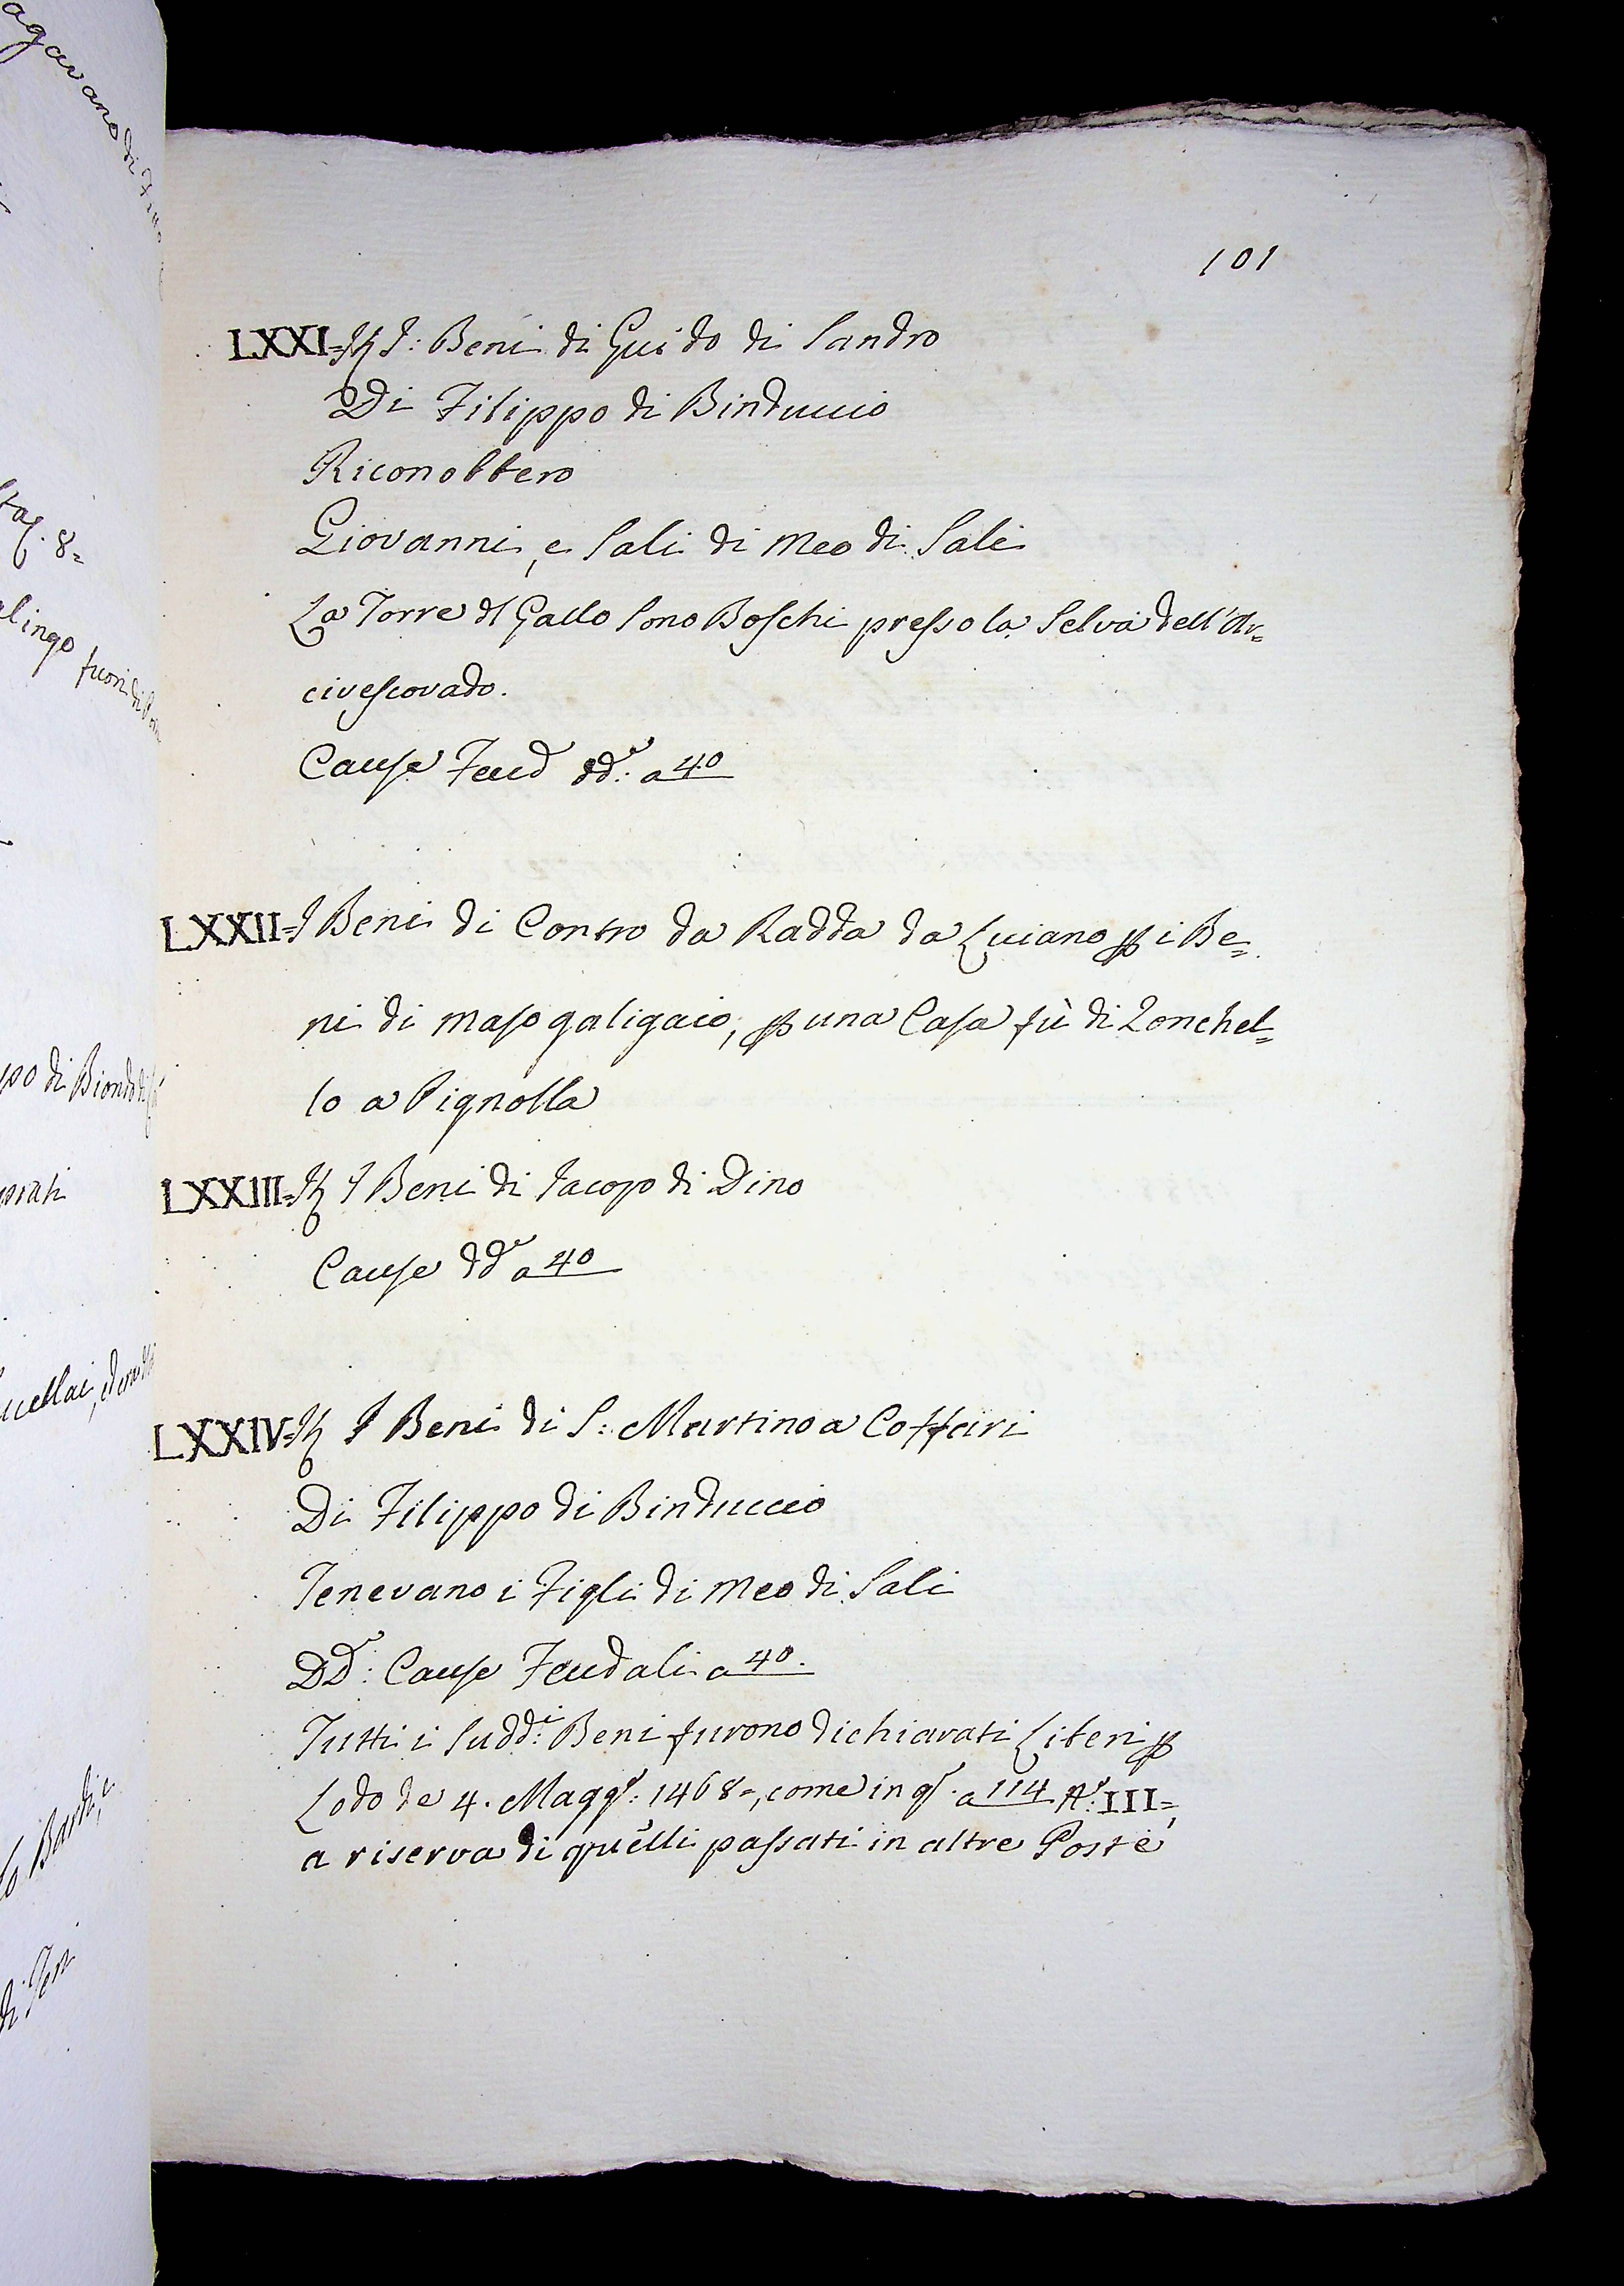 101
LXXI= It I: Beni di Guido di Sandro
Di Filippo di Binduccio
Riconobbero
Giovanni, e Sali di Meo di Sali
La Torre dl Gallo sono Boschi presso la Selva dell'Ar=
civescovado.
Cause Feud dd.e a 40
LXXII= I Beni di Contro da Radda da Luciano p i Be=
ni di Maso galigaio, p una Casa fù di Zonchel=
lo a Pignolla
LXXIII= It I Beni di Iacopo di Dino
Cause dd.e a 40
LXXIV= It I Beni di S: Martino a Coffari
Di Filippo di Binduccio
Tenevano i Figli di Meo di Sali
Dd.e: Cause Feudali a 40.
Tutti i Sudd.i: Beni furono dichiarati Liberi p
Lodo de 4. Magg.o: 1468=, come in q.o a 114 III=,
a riserva di quelli passati in altre Poste